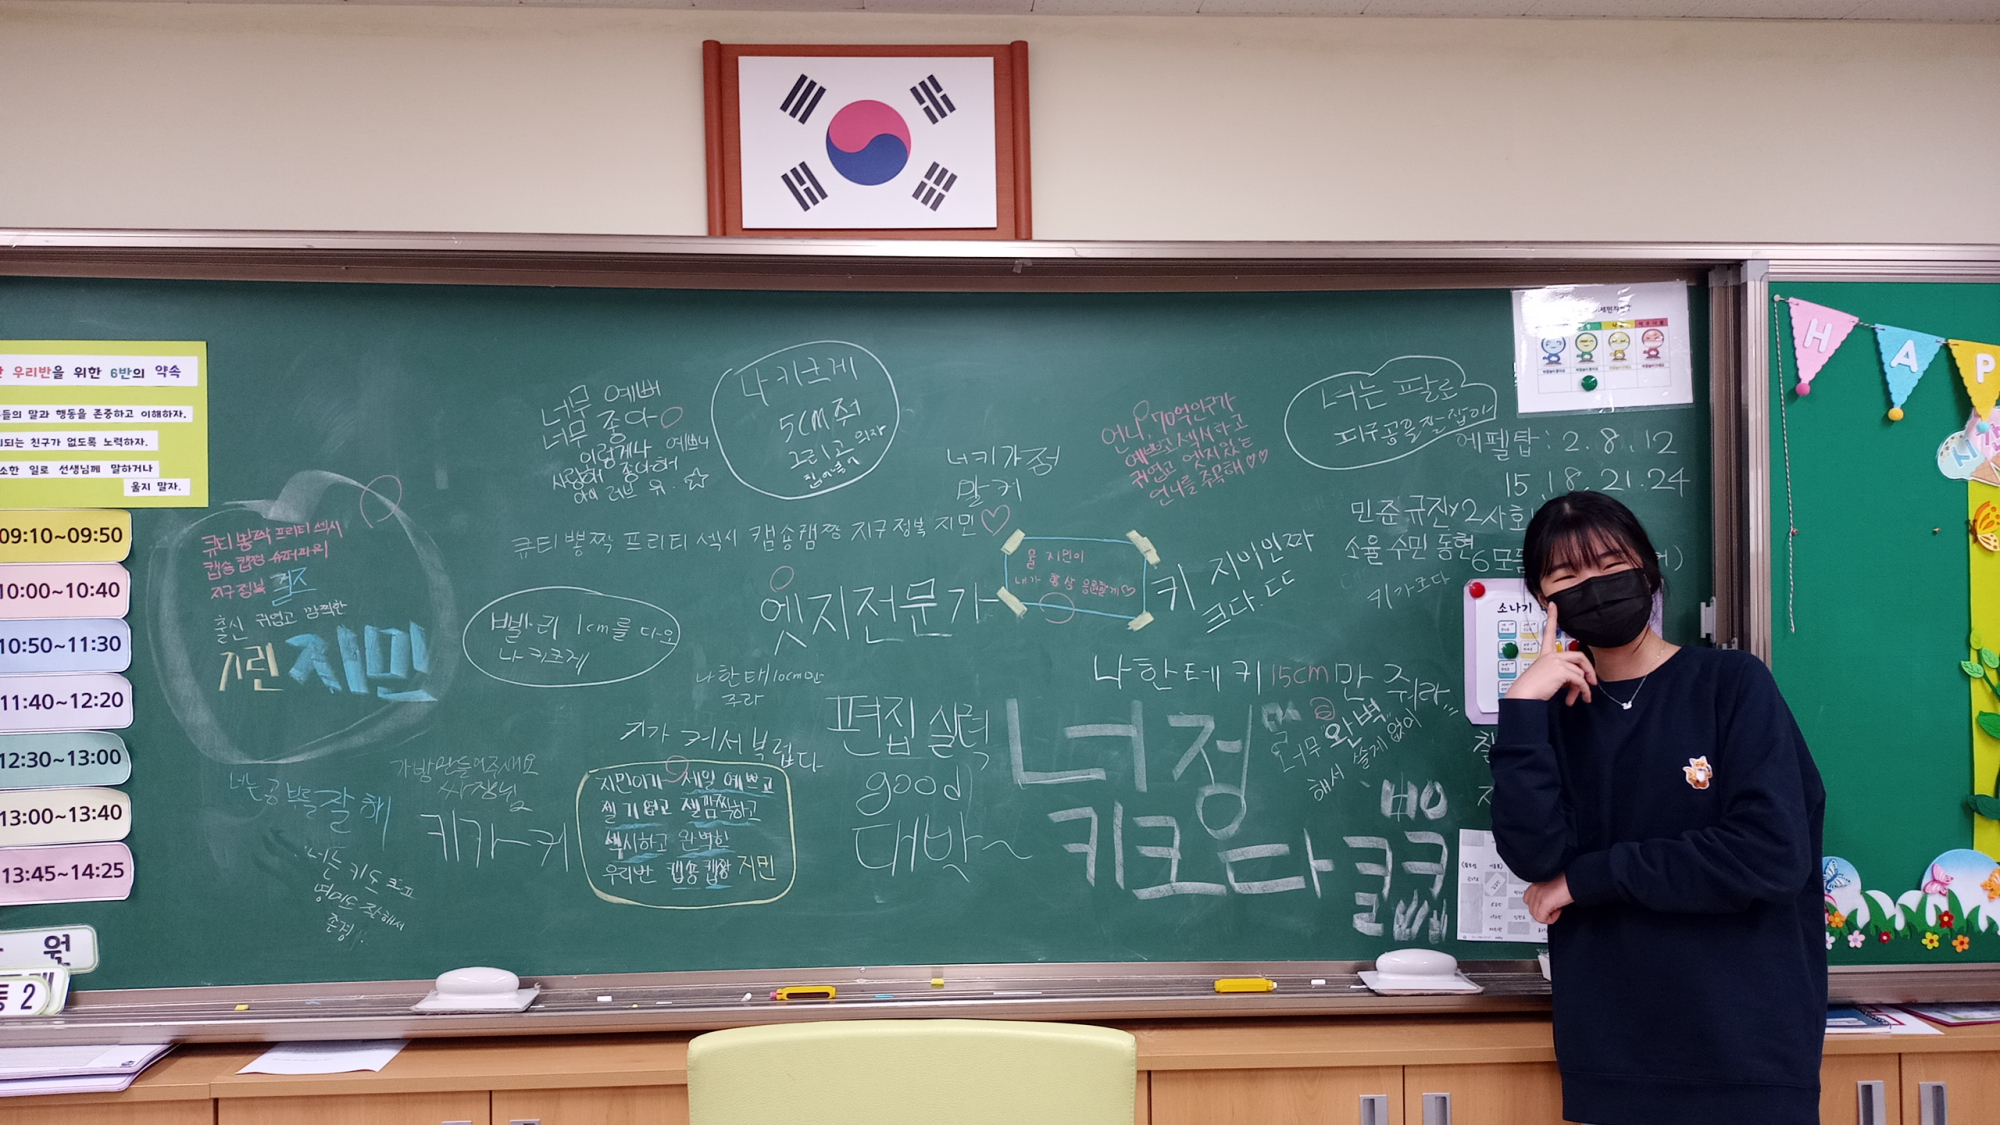 우리반을 위한 6반의 약속
들의 말과 행동을 존중하고 이해하자.
되는 친구가 없도록 노력하자.
소한 일로 선생님께 말하거나
울지 말자.
09:10~09:50
10:00~10:40
10:50~11:30
11:40~12:20
12:30~13:00
13:00~13:40
13:45~14:25
원
2
큐티뽕짝 프리티 섹시
캡숑 캡쨩
지구정복 걸즈
출신 귀엽고 깜찍한
지린 지민
너는 공부를 잘해
너는 키도 크고
존경!!
가방만들어주세요
싸장님
키카 커
너무 예뻐
너무 좋아
이렇게나 예쁘니
사랑해 좋아해
아이 러브 유 ☆
나 키크게
5cm 줘
그리고 의자
큐티뽕짝 프리티 섹시 캡숑캡쨩 지구정복 지민♡
빨리 1cm를 다오
나 키크게
나한테 10cm만
주라
키가 커서 부럽다
지민이가 제일 예쁘고
젤 귀엽고 젤깜찍하고
섹시하고 완벽한
우리반 캡숑캡쨩 지민
엣지전문가
편집 실력
good
대박~
너 키 가 정
말 커
언니, 70억인구가
예쁘고 섹시하고
귀엽고 엣지있는
언니를 주목해♡♡
너는 팔로
피구공을 잘 잡아
울 지민이
내가 항상 응원할게♡
키 지이인짜
크다.ㄷㄷ
나한테 키 15cm만 줘라
너 정
키크다
너무 완벽
해서 쓸게 없어
에펠탑: 2. 8. 12
15. 18. 21. 24
민준 규진 2
소율 수민 동현 6모둠
키가크다
소나기
H A P